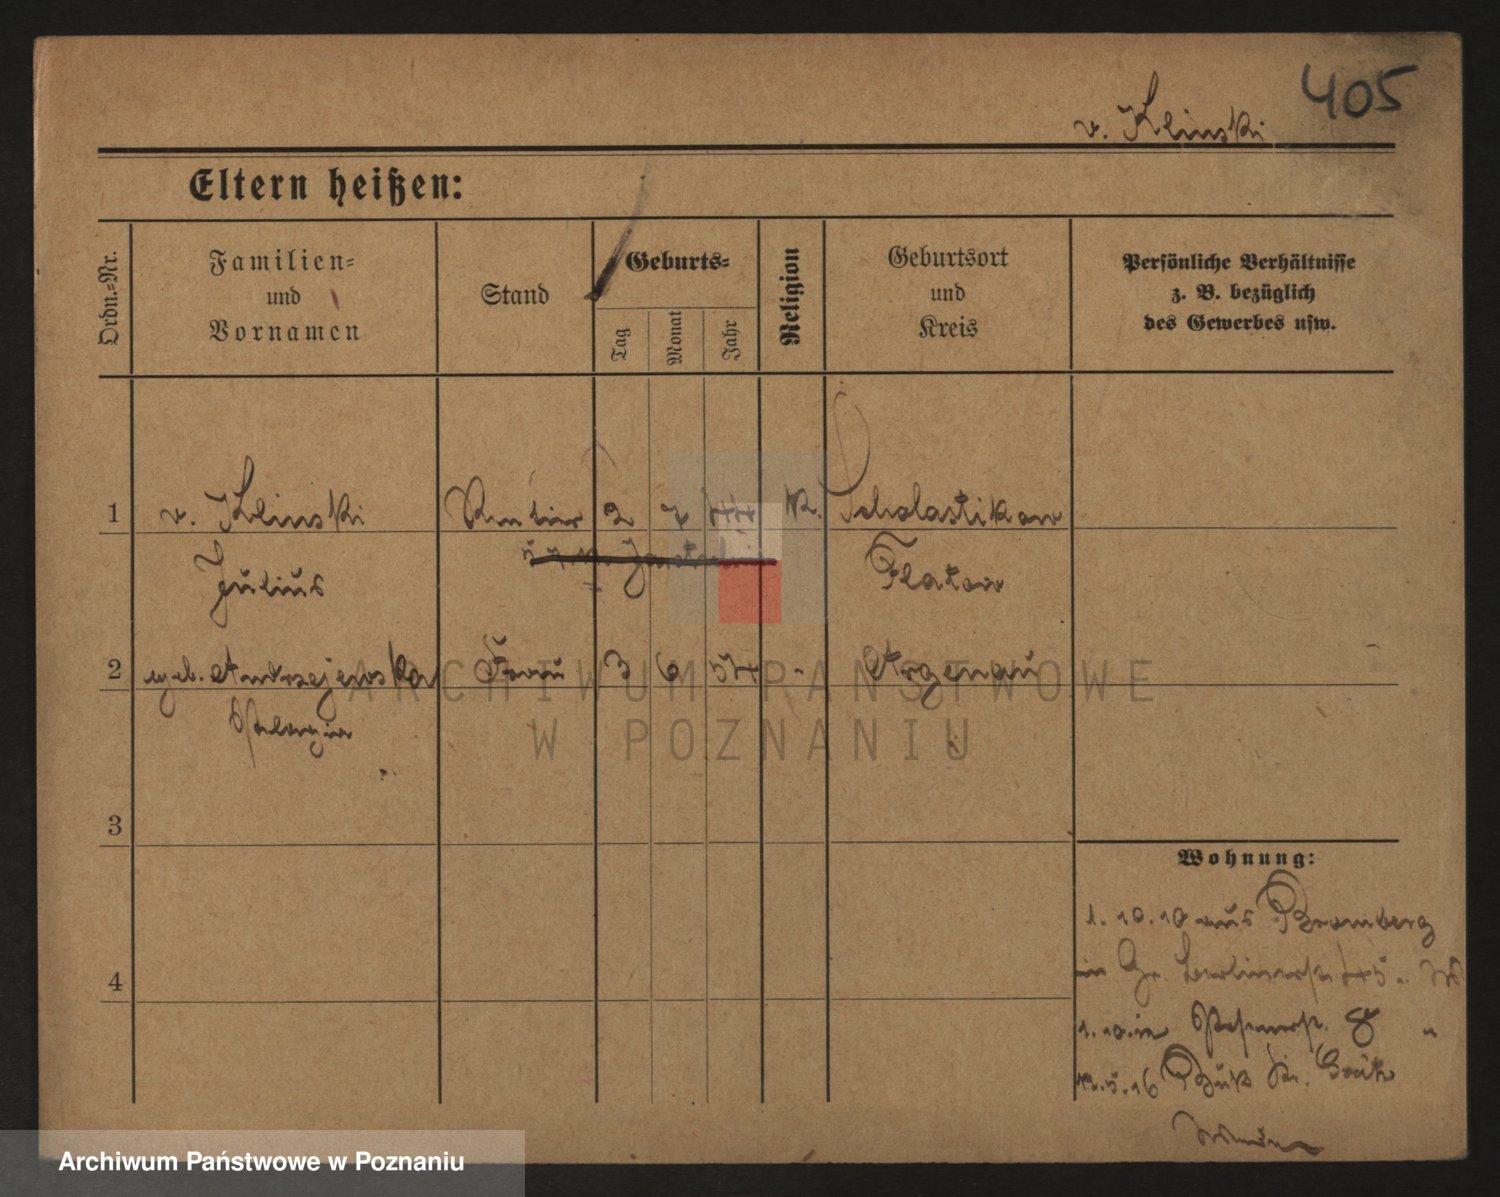 405
v. Klinski
Eltern heißen:
Ordn.-Nr.
Familien-
und
Vornamen
Stand
Geburts-
Tag
Monat
Jahr
Religion
Geburtsort
und
Kreis
Persönliche Verhältnisse
z. B. bezüglich
des Gewerbes usw.
1 v. Klinski Rentier 2 7 44 K. Scholastikowo
Julius Flatow
2 geb. Andrzejewska Frau 3 6 54 " Argenau
Pelagia
3
Wohnung:
1.10.10 aus Bromberg
in Gr. Berlinerstr. 45
4
1.10. in Posenerstr. 8 "
12.5.16 Buk Kr. Grätz
ARCHIWUM PAŃSTWOWE
W POZNANIU
Archiwum Państwowe w Poznaniu